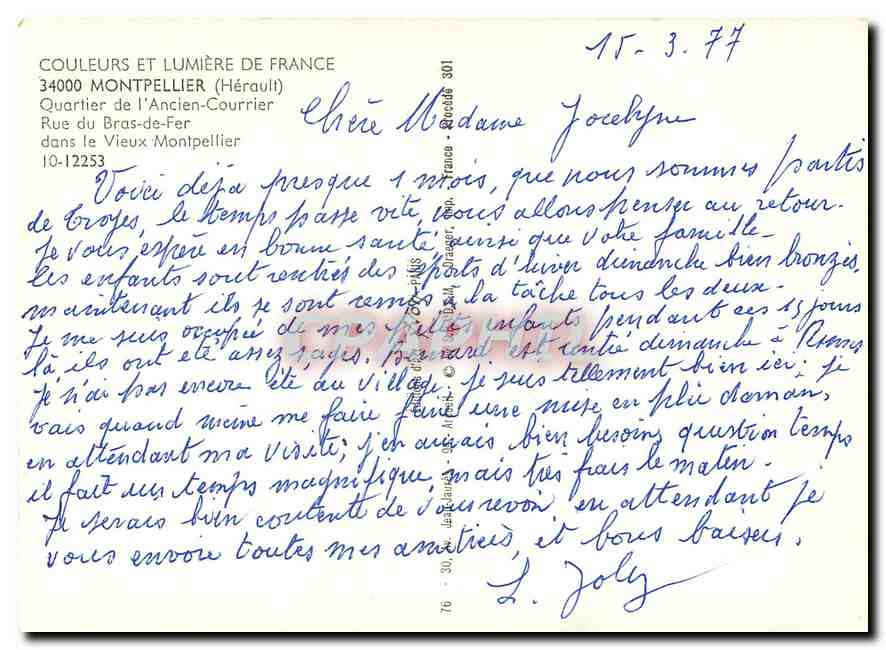 15-3.77
COULEURS ET LUMIÈRE DE FRANCE
34000 MONTPELLIER (Hérault)
Quartier de l'Ancien-Courrier
Rue du Bras-de-Fer
dans le Vieux Montpellier
10-12253
Chère Madame Jocelyne
Voici déjà presque 1 mois, que nous sommes partis
de Troyes, le temps passe vite, nous allons penser au retour.
Je vous espère en bonne santé ainsi que votre famille-
les enfants sont rentrés des sports d'hiver dimanche bien bronzés,
maintenant ils se sont remis à la tâche tous les deux-
Je me suis occupée de mes petits enfants pendant ces 15 jours
là ils ont été assez sages. Bernard est rentré dimanche à
Je n'ai pas encore été au village, je suis tellement bien ici; je
vais quand même me faire faire une mise en plie demain,
en attendant ma visite; j'en aurais bien besoin, question temps
il fait un temps magnifique, mais très frais le matin.
Je serais bien contente de vous revoir en attendant je
vous envoie toutes mes amitiés, et bons baisers.
L. Joly
76 - 30, av. Jean-Jaurès - 94 - Arcueil - © S.P.A.D.E.M. Draeger, imp. France - Procédé 301
PARIS